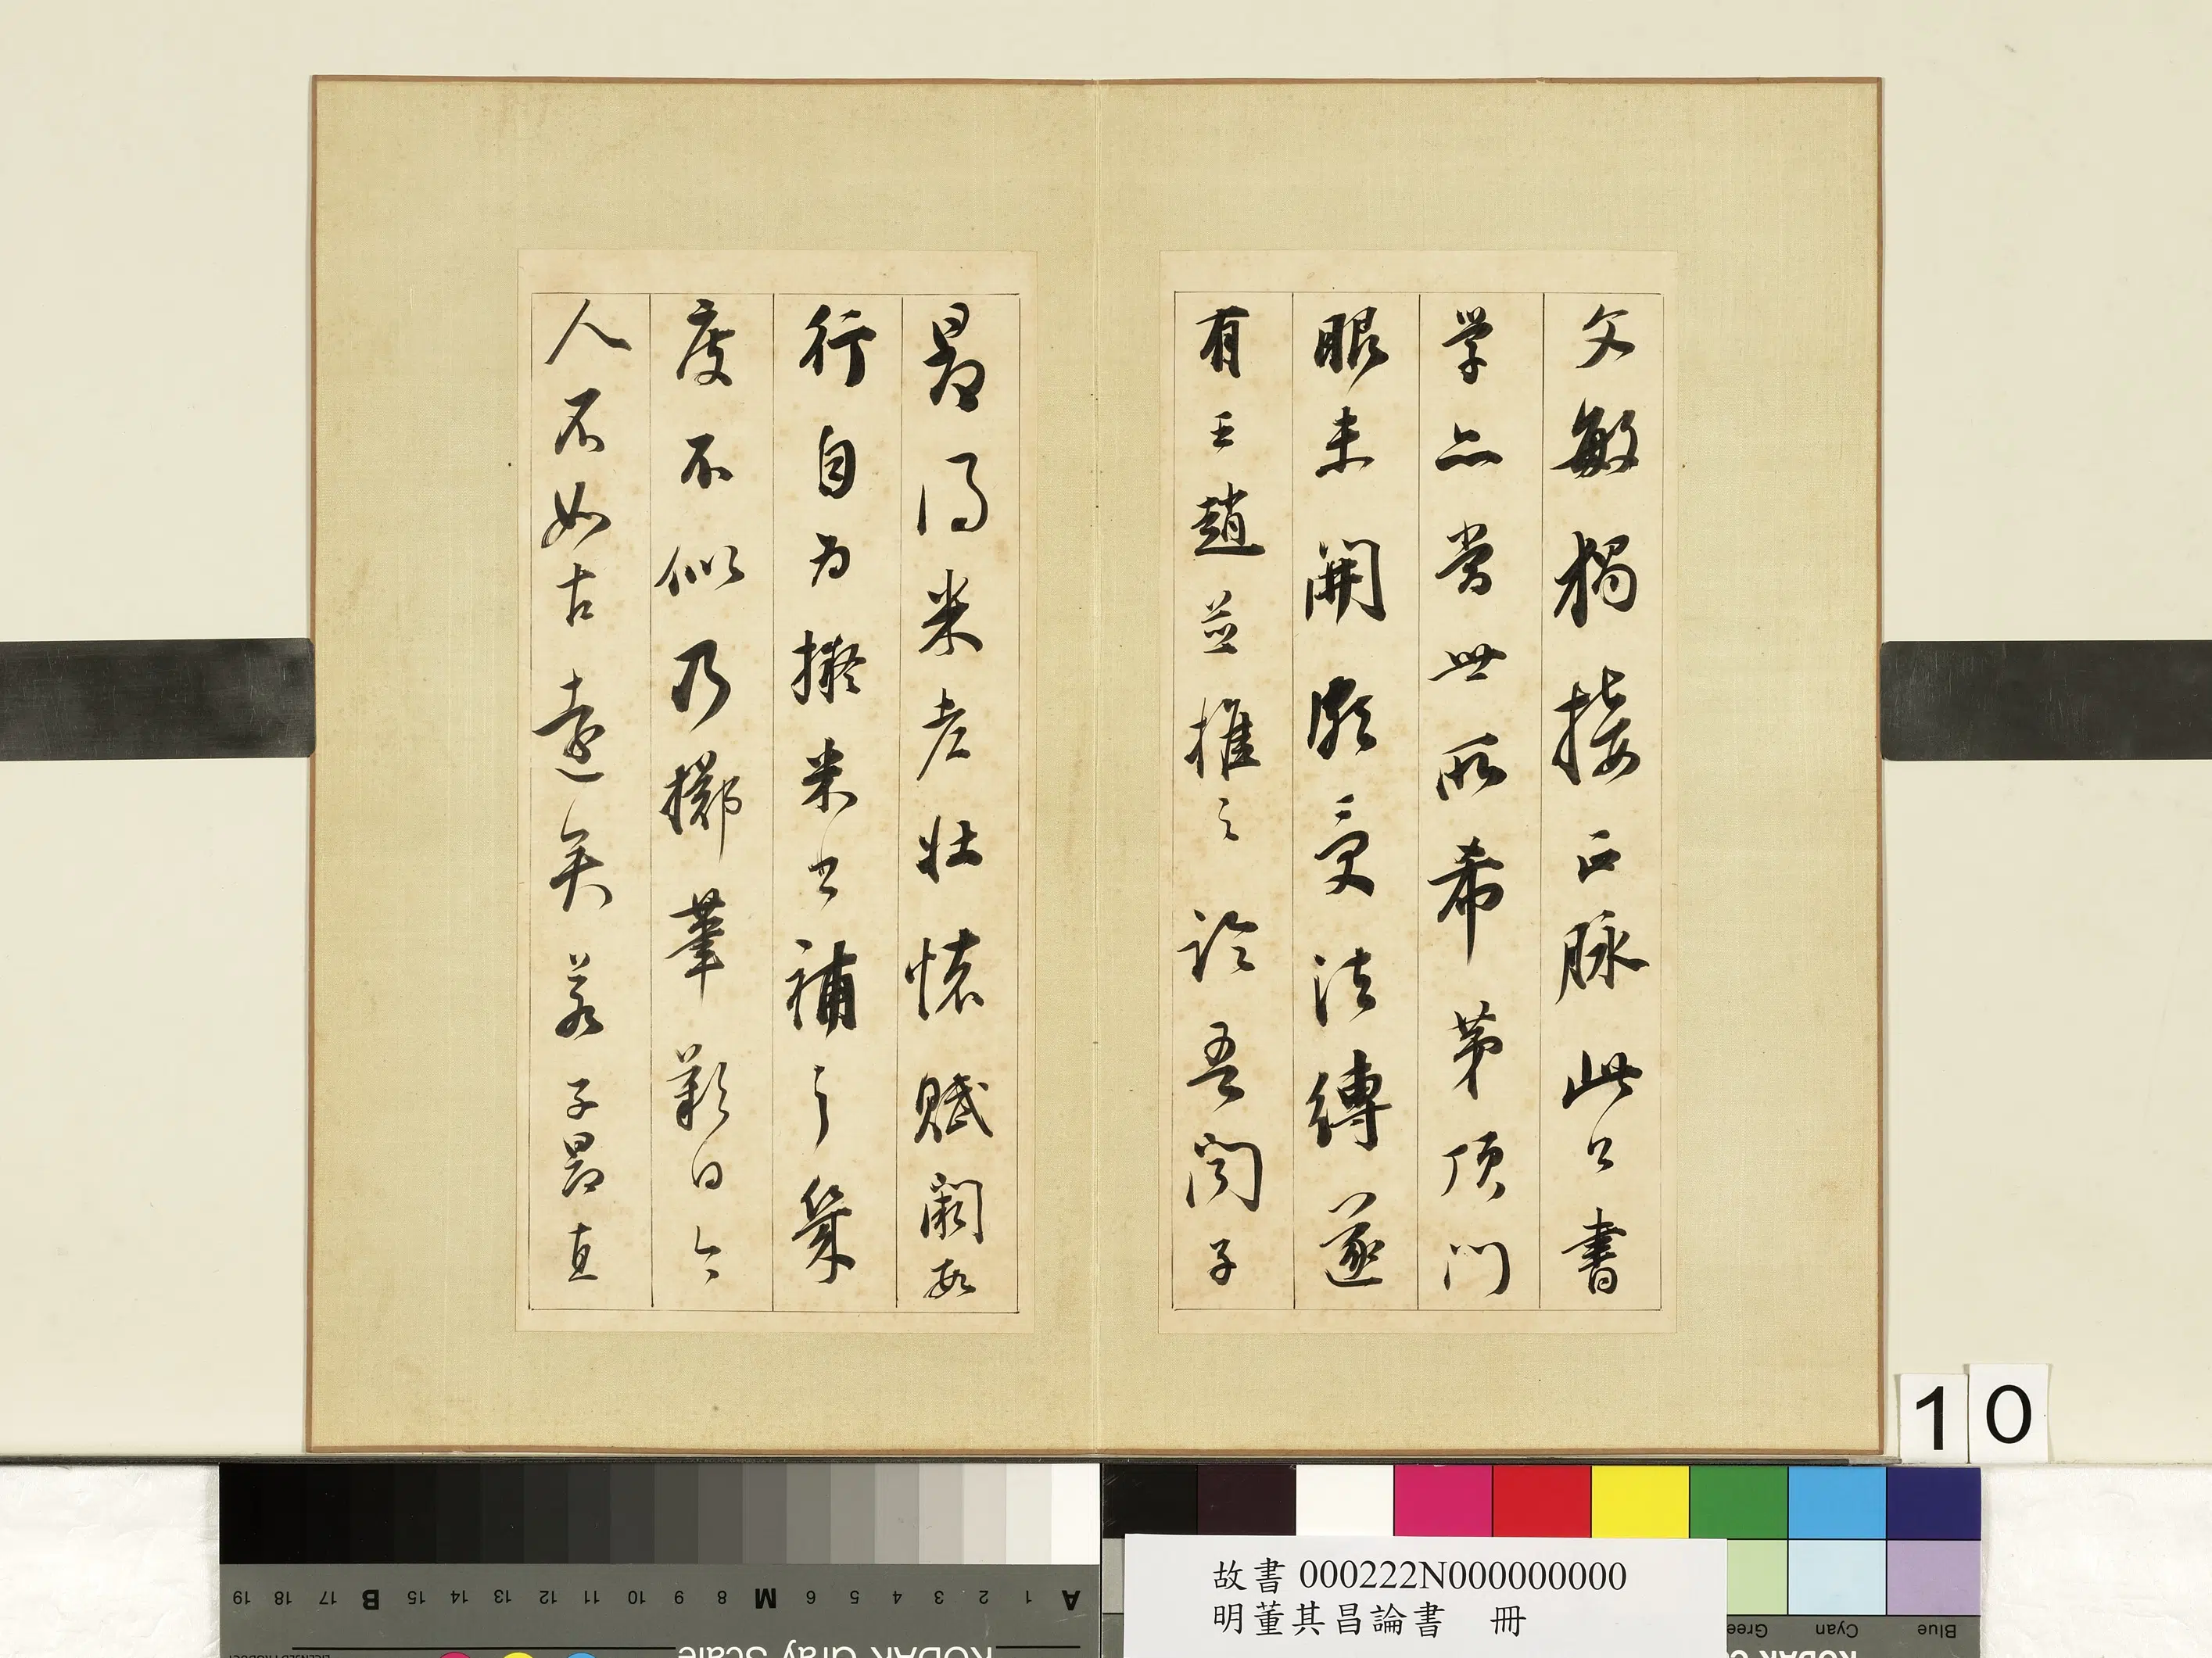 文敏獨接正脉此公書
学亦當世所希第頂門
眼未開微受法縛遂
有王趙並推之論吾聞子
昂得米老壯懷賦闕數
行自為擬米書補了幾
度不似乃擲筆歎曰今
人不如古遠矣若子昂直
10
A 1 2 3 4 5 6 M 8 9 10 11 12 13 14 15 B 17 18 19
KODAK Gray Scale
Blue Cyan Gree
故書 000222N000000000
明董其昌論書 冊